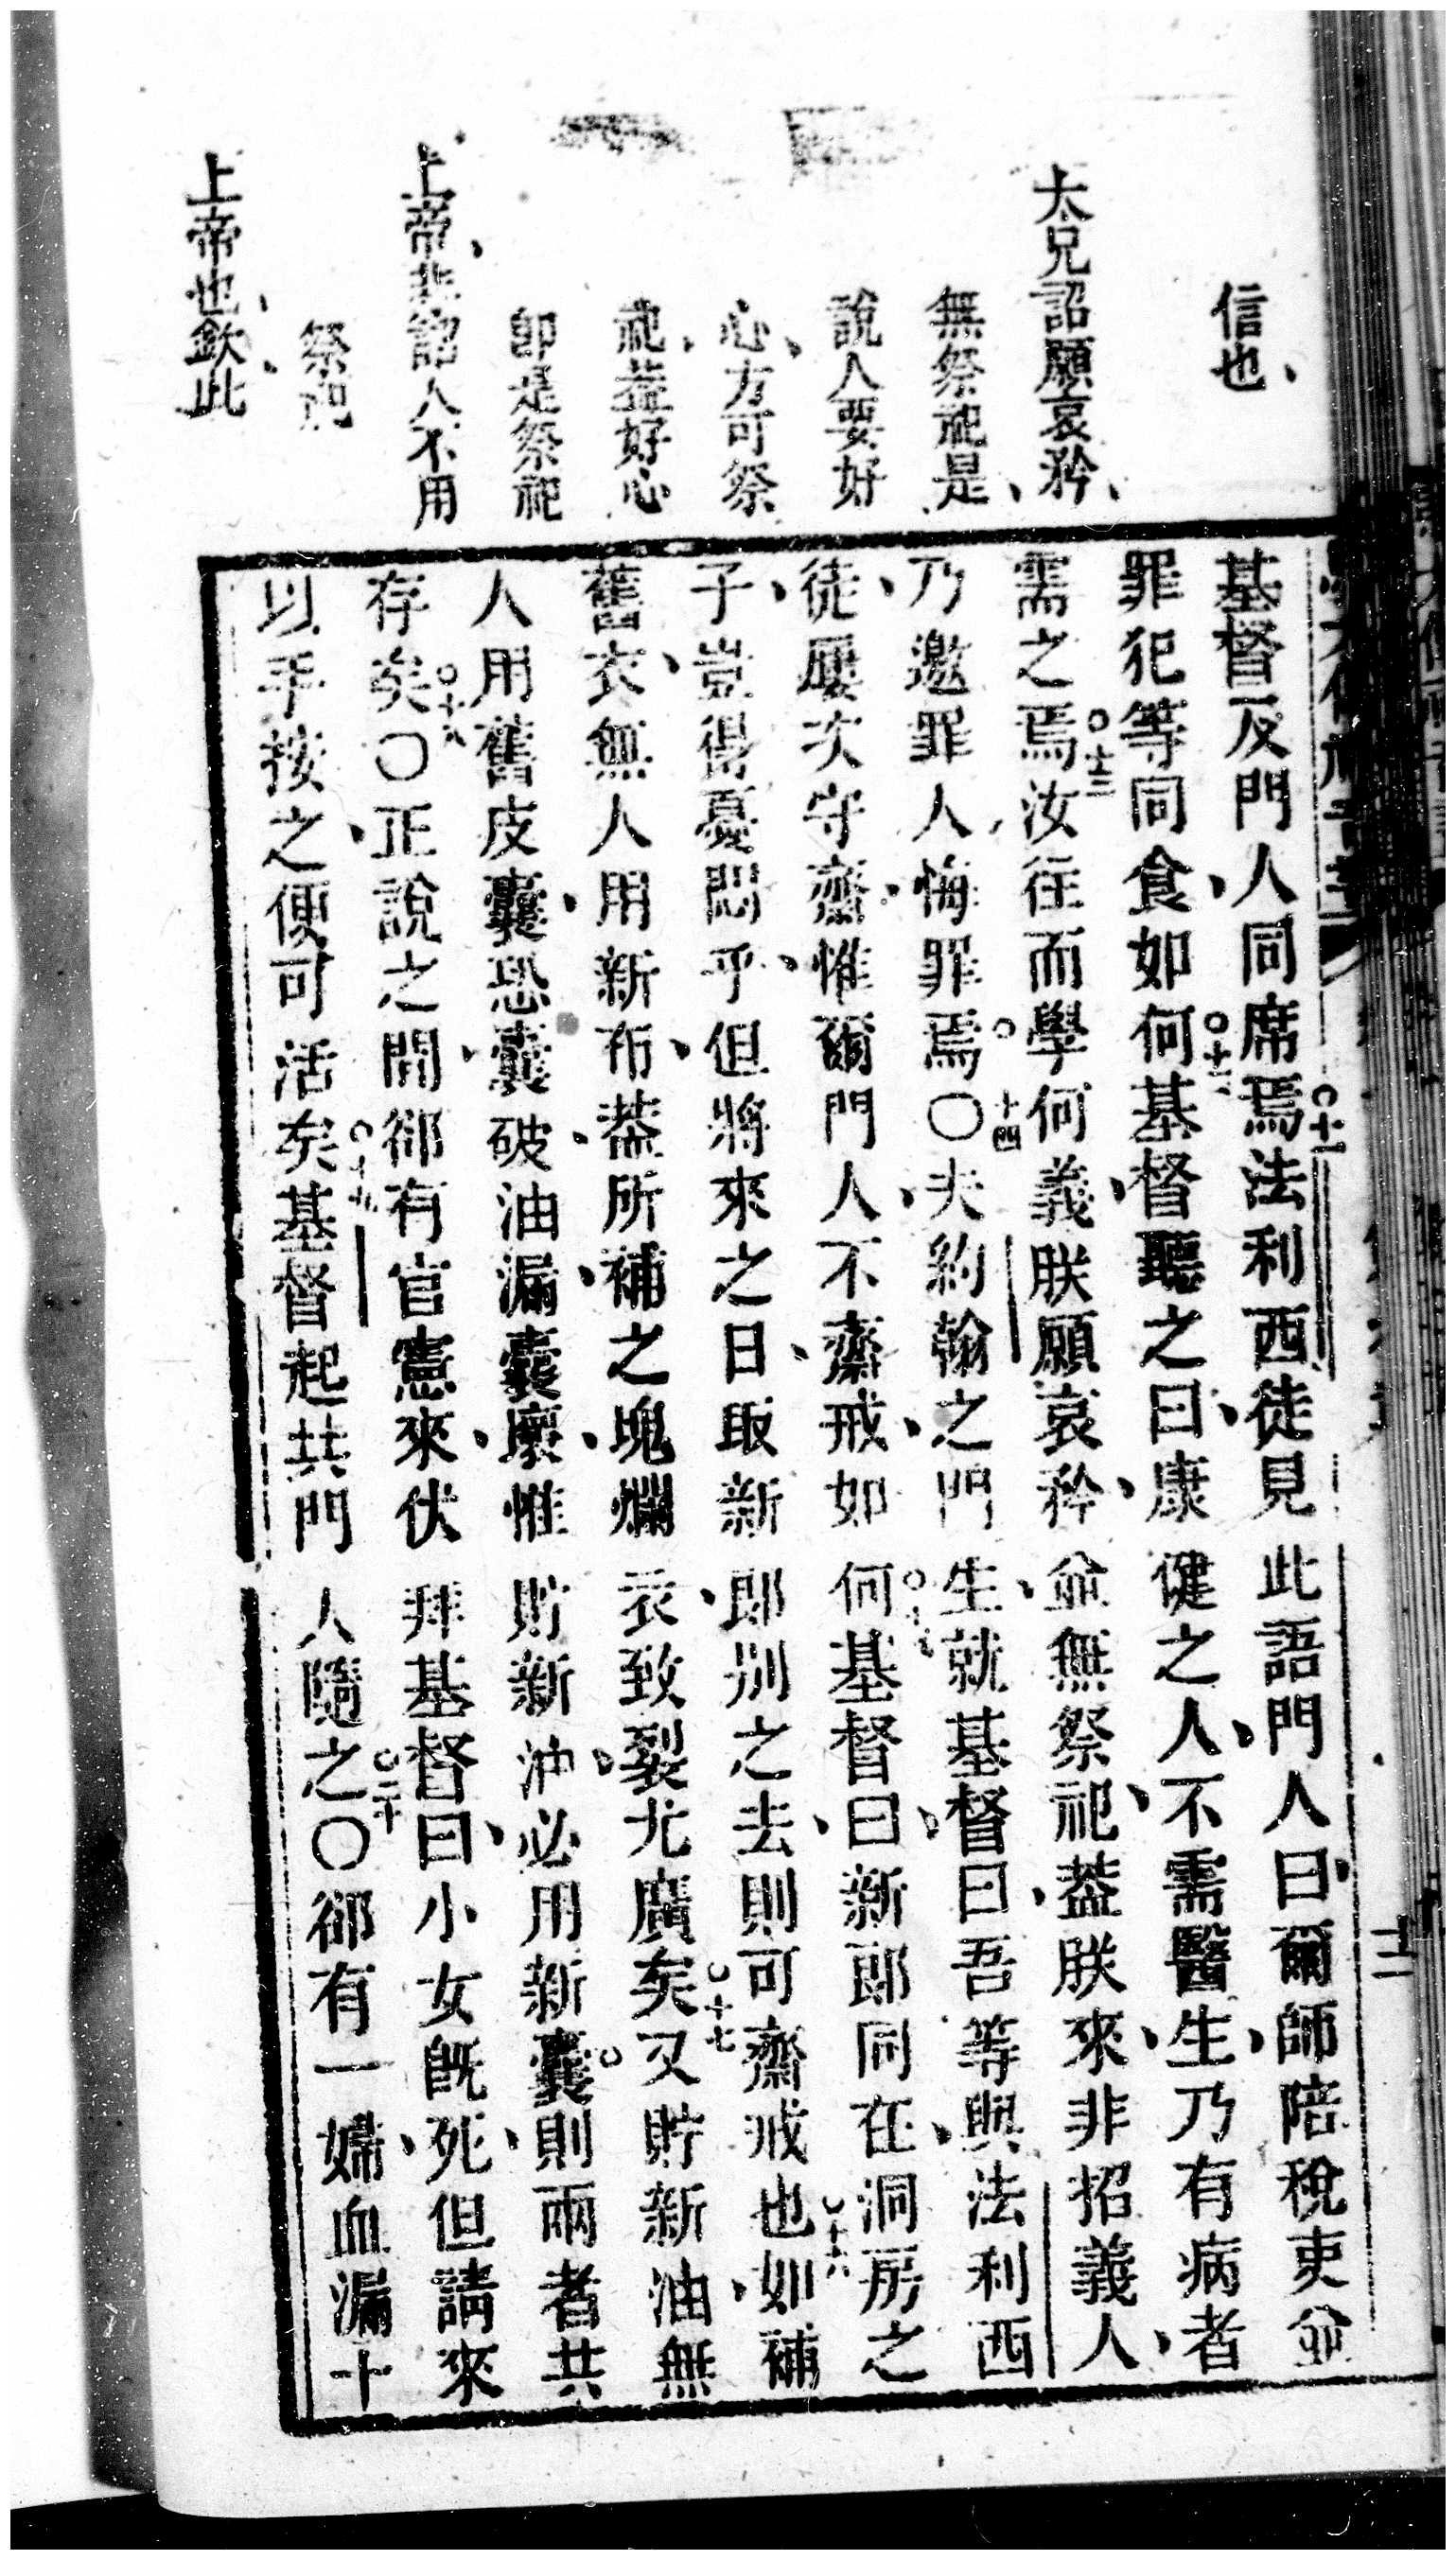 信也、
大兄詔願哀矜、
無祭祀是、
說人要好
心、方可祭
祀、蓋好心
即是祭祀
上帝、非詔人不用
祭祀
上帝也、欽此、
基督及門人同席焉○十一法利西徒見此語門人曰、爾師陪稅吏並
罪犯等同食、如何○十二基督聽之曰、康健之人、不需醫生、乃有病者
需之焉○十三汝往而學何義、朕願哀矜、並無祭祀、蓋朕來、非招義人、
乃邀罪人悔罪焉○十四〇夫約翰之門生、就基督曰、吾等與法利西
徒、屢次守齋、惟爾門人、不齋戒、如何○十五基督曰、新郎同在、洞房之
子、豈得憂悶乎、但將來之日、取新郎別之去、則可齋戒也○十六如補
舊衣、無人用新布、蓋所補之塊爛衣、致裂尤廣矣○十七又貯新油、無
人用舊皮囊、恐囊破、油漏、囊壞、惟貯新油、必用新囊、則兩者共
存矣○十八〇正說之間、卻有官憲來、伏拜基督曰、小女既死、但請來
以手按之、便可活矣○十九基督起共門人隨之○二十〇卻有一婦、血漏十
十二